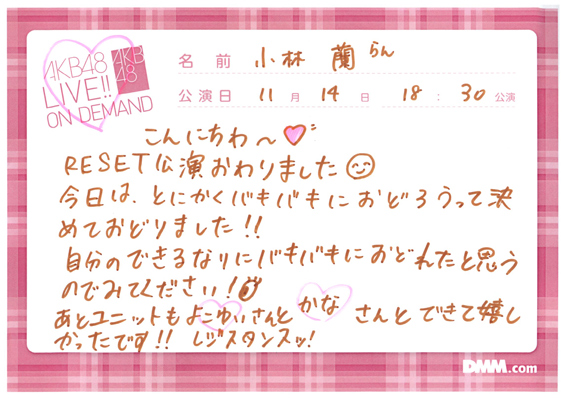 AKB48
LIVE!!
ON DEMAND
AKB
48
名前 小林 蘭 らん
公演日 11月 14日 18:30公演
こんにちわ〜
RESET公演おわりました
今日は、とにかくバキバキにおどろうって決
めておどりました!!
自分のできるなりにバキバキにおどれたと思う
のでみてください!
あとユニットもよこゆいさんとかなさんとできて嬉し
かったです!! レジスタンスッ!
DMM.com